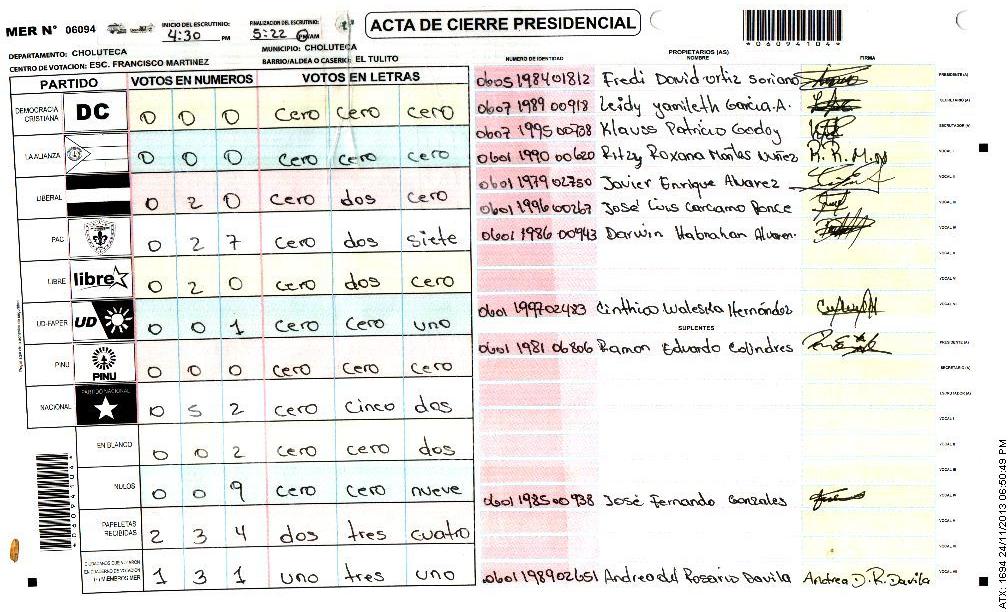 MER N° 06094
INICIO DEL ESCRUTINIO: 4:30 PM
FINALIZACION DEL ESCRUTINIO: 5:22 PM/AM
ACTA DE CIERRE PRESIDENCIAL
*06094104*
DEPARTAMENTO: CHOLUTECA
MUNICIPIO: CHOLUTECA
CENTRO DE VOTACION: ESC. FRANCISCO MARTINEZ
BARRIO/ALDEA O CASERIO: EL TULITO
PARTIDO VOTOS EN NUMEROS VOTOS EN LETRAS
DEMOCRACIA CRISTIANA DC 0 0 0 cero cero cero
LA ALIANZA 0 0 0 cero cero cero
LIBERAL 0 2 0 cero dos cero
PAC 0 2 7 cero dos siete
LIBRE libre 0 2 0 cero dos cero
UD-FAPER UD 0 0 1 cero cero uno
PINU PINU 0 0 0 cero cero cero
NACIONAL PARTIDO NACIONAL 0 5 2 cero cinco dos
EN BLANCO 0 0 2 cero cero dos
NULOS 0 0 9 cero cero nueve
PAPELETAS RECIBIDAS 2 3 4 dos tres cuatro
1 3 1 uno tres uno
*06094104*
PROPIETARIOS (AS)
NUMERO DE IDENTIDAD NOMBRE FIRMA
0605 1984 01812 Fredi David ortiz soriano PRESIDENTE(A)
0607 1989 00918 Leidy yamileth Garcia.A. SECRETARIO (A)
0607 1995 00738 Klauss Patricio Godoy ESCRUTADOR (A)
0601 1990 00620 Ritzy Roxana Nuñez R. R. M. VOCAL I
0601 1979 02750 Javier Enrique Alvarez VOCAL II
0601 1996 00267 José Luis Carcamo Ponce VOCAL III
0601 1986 00943 Darwin Habrahan VOCAL IV
VOCAL V
VOCAL VI
0601 1997 02483 Cinthico Waleska Hernández
SUPLENTES
0601 1981 06806 Ramon Eduardo Colindres PRESIDENTE (A)
SECRETARIO (A)
ESCRUTADOR (A)
VOCAL I
VOCAL II
VOCAL III
0601 1985 00938 José Fernando Gonzales VOCAL IV
VOCAL V
0601 1989 02651 Andrea del Rosario Davila Andrea D. R. Davila
ATX: 1694 24/11/2013 06:50:49 PM